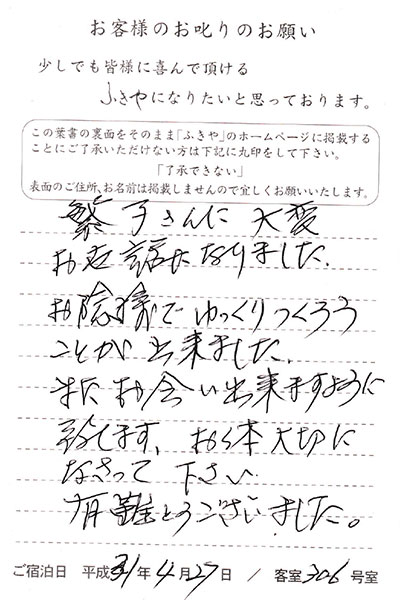 お客様のお叱りのお願い
少しでも皆様に喜んで頂ける
ふきやになりたいと思っております。
この葉書の裏面をそのまま「ふきや」のホームページに掲載する
ことにご了承いただけない方は下記に丸印をして下さい。
「了承できない」
表面のご住所、お名前は掲載しませんので宜しくお願いいたします。
繁子さんに大変
お世話になりました。
お陰様でゆっくりつくろう
ことが出来ました。
またお会い出来ますように
致します、お体大切に
なさって下さい
有難とうございました。
ご宿泊日 平成31年4月27日 / 客室306号室